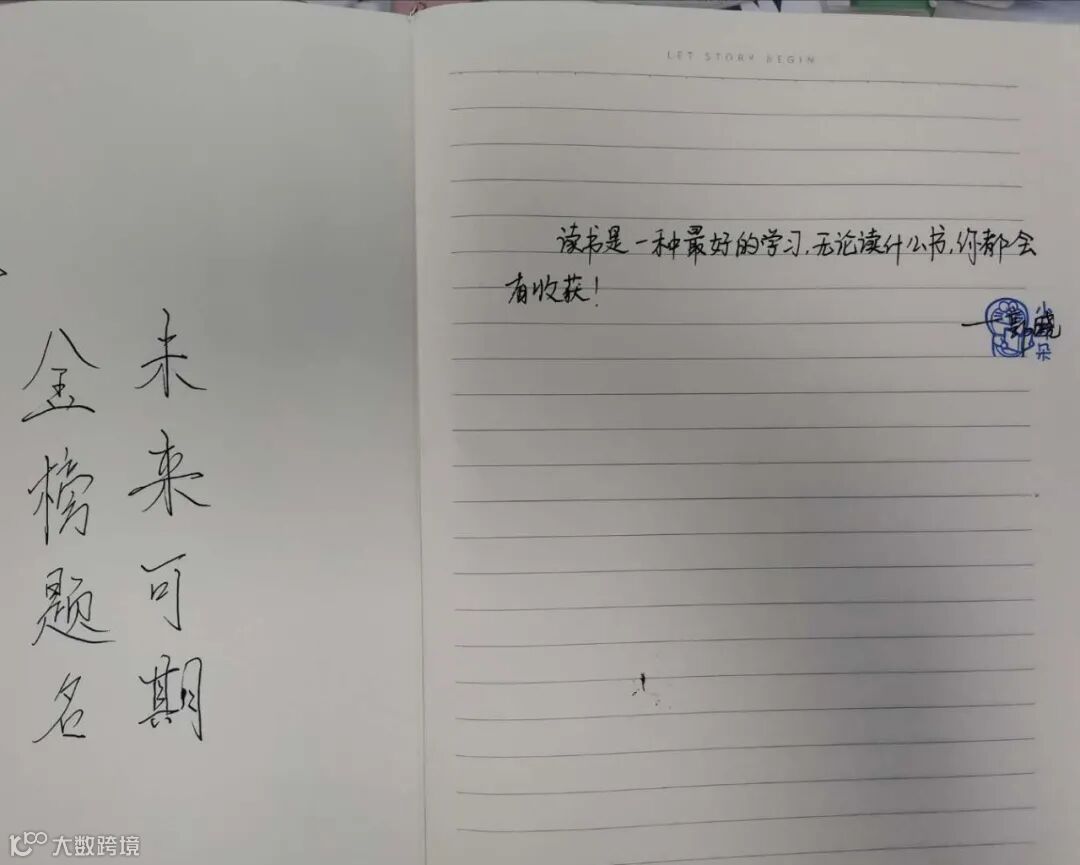 未来可期
金榜题名
LET STORY BEGIN
读书是一种最好的学习,无论读什么书,你都会
有收获!
小朵
大数跨境